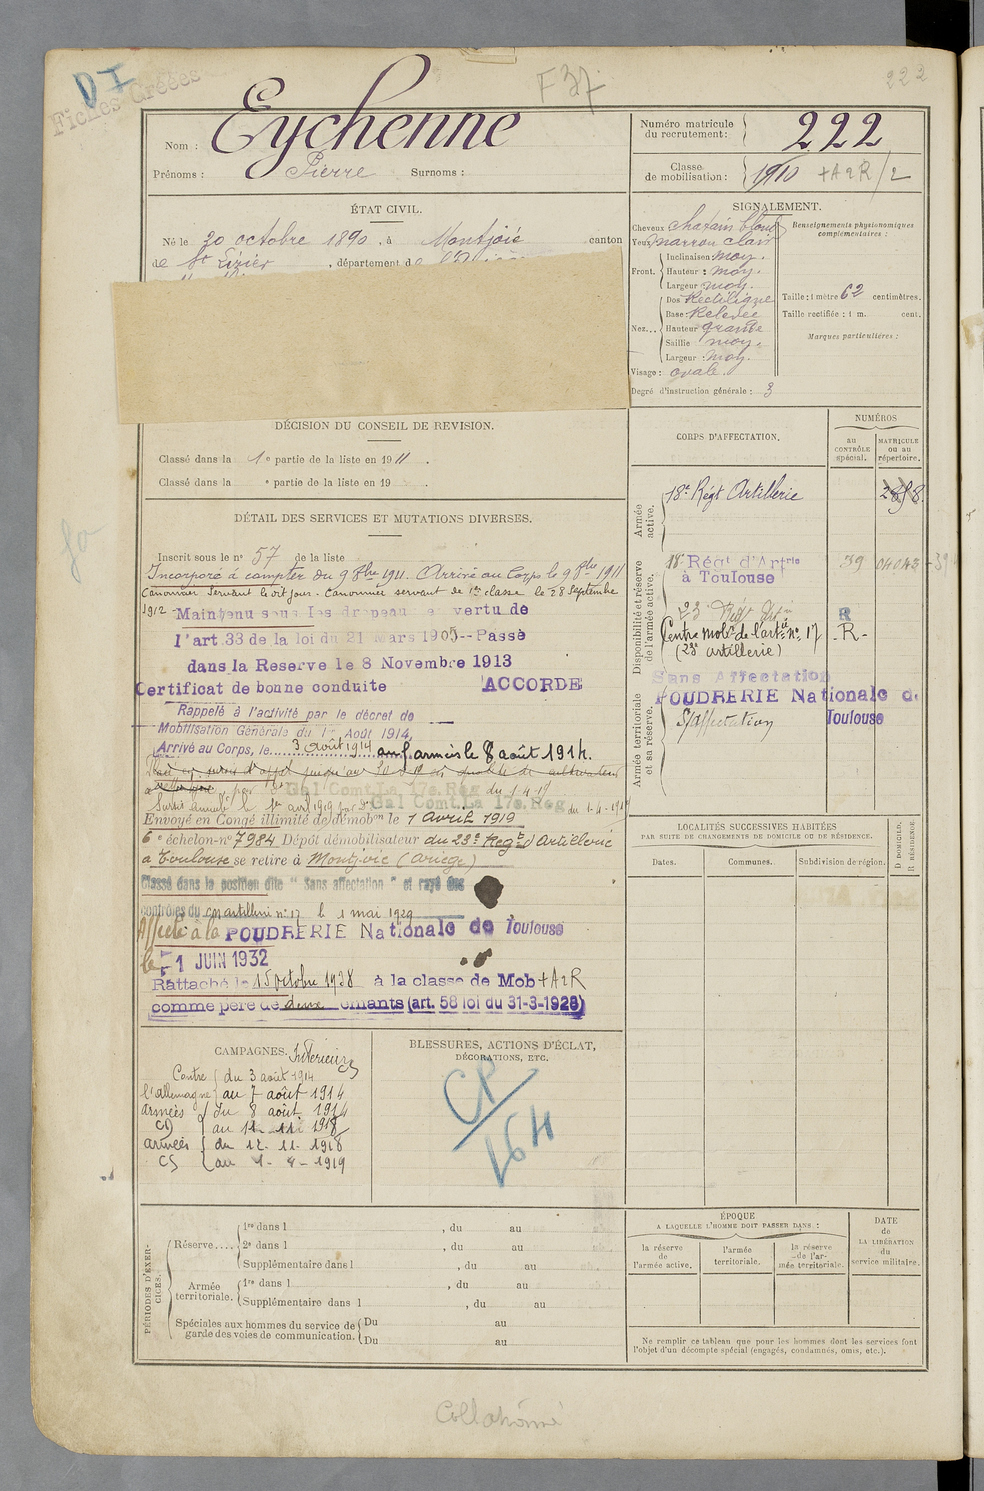 D I
Fiches Créées
F 37
222
Nom : Eychenne
Prénoms : Pierre Surnoms :
Numéro matricule du recrutement : 222
Classe de mobilisation : 1910 + A 2 R / 2
ÉTAT CIVIL.
Né le 20 octobre 1890, à Montjoie canton
de St Lizier, département d
SIGNALEMENT.
Cheveux chatain blond
Yeux marron clair
Front. Inclinaison moy.
Hauteur : moy.
Largeur moy.
Nez... Dos Rectiligne
Base Relevée
Hauteur grande
Saillie moy.
Largeur : moy.
Visage : ovale.
Degré d'instruction générale : 3
Renseignements physionomiques complémentaires :
Taille : 1 mètre 62 centimètres.
Taille rectifiée : 1 m. cent.
Marques particulières :
DÉCISION DU CONSEIL DE REVISION.
Classé dans la 1e partie de la liste en 1911.
Classé dans la e partie de la liste en 19 .
DÉTAIL DES SERVICES ET MUTATIONS DIVERSES.
Inscrit sous le no 57 de la liste
Incorporé à compter du 9 8bre 1911. Arrivé au Corps le 9 8bre 1911
Canonnier servant le dit jour. Canonnier servant de 1re classe le 28 Septembre
1912 - Maintenu sous les drapeaux en vertu de
l'art.33 de la loi du 21 Mars 1905--Passé
dans la Reserve le 8 Novembre 1913
Certificat de bonne conduite ACCORDE
Rappelé à l'activité par le décret de
Mobilisation Générale du 1er Août 1914,
Arrivé au Corps, le 3 août 1914 aux armées le 8 août 1914.
Gal Comt. La 17e. Reg du 1.4.19
Sursis annulé le 1er avril 1919 par Gal Comt. La 17e. Reg du 1-4-1919
Envoyé en Congé illimité de démobon le 1 Avril 1919
6e échelon-no 7984 Dépôt démobilisateur du 23e Régt d'Artillerie
à Toulouse se retire à Montjoie (Ariège)
Classé dans la position dite "Sans affectation" et rayé des
contrôles du cm artillerie no 17 le 1 mai 1929
Affecté à la POUDRERIE Nationale de Toulouse
le - 1 JUIN 1932
Rattaché le 15 octobre 1938 à la classe de Mob + A 2 R
comme père de deux enfants (art. 58 loi du 31-3-1928)
CORPS D'AFFECTATION.
NUMÉROS
au CONTRÔLE spécial.
MATRICULE ou au répertoire.
Armée active.
18e Régt Artillerie
Disponibilité et réserve de l'armée active.
18e Régt d'Artrie à Toulouse 39 04043
23e Régt Art R
Centre mobr de l'artie no 17 - R -
(23e artillerie)
Armée territoriale et sa réserve.
Sans Affectation
POUDRERIE Nationale de Toulouse
S/affectation
LOCALITÉS SUCCESSIVES HABITÉES
PAR SUITE DE CHANGEMENTS DE DOMICILE OU DE RÉSIDENCE.
Dates. Communes. Subdivision de région. D DOMICILE. R RÉSIDENCE.
CAMPAGNES. Intérieur CS
Contre l'allemagne du 3 août 1914
au 7 août 1914
armées du 8 août 1914
CD au 11 11 1918
armées du 12. 11. 1918
CS au 1 - 4 - 1919
BLESSURES, ACTIONS D'ÉCLAT,
DÉCORATIONS, ETC.
CP
164
PÉRIODES D'EXERCICES.
Réserve.... 1re dans l , du au
2e dans l , du au
Supplémentaire dans l , du au
Armée territoriale. 1re dans l , du au
Supplémentaire dans l , du au
Spéciales aux hommes du service de garde des voies de communication. Du au
Du au
ÉPOQUE
A LAQUELLE L'HOMME DOIT PASSER DANS :
la réserve de l'armée active.
l'armée territoriale.
la réserve de l'armée territoriale.
DATE de LA LIBÉRATION du service militaire.
Ne remplir ce tableau que pour les hommes dont les services font
l'objet d'un décompte spécial (engagés, condamnés, omis, etc.).
Collationné